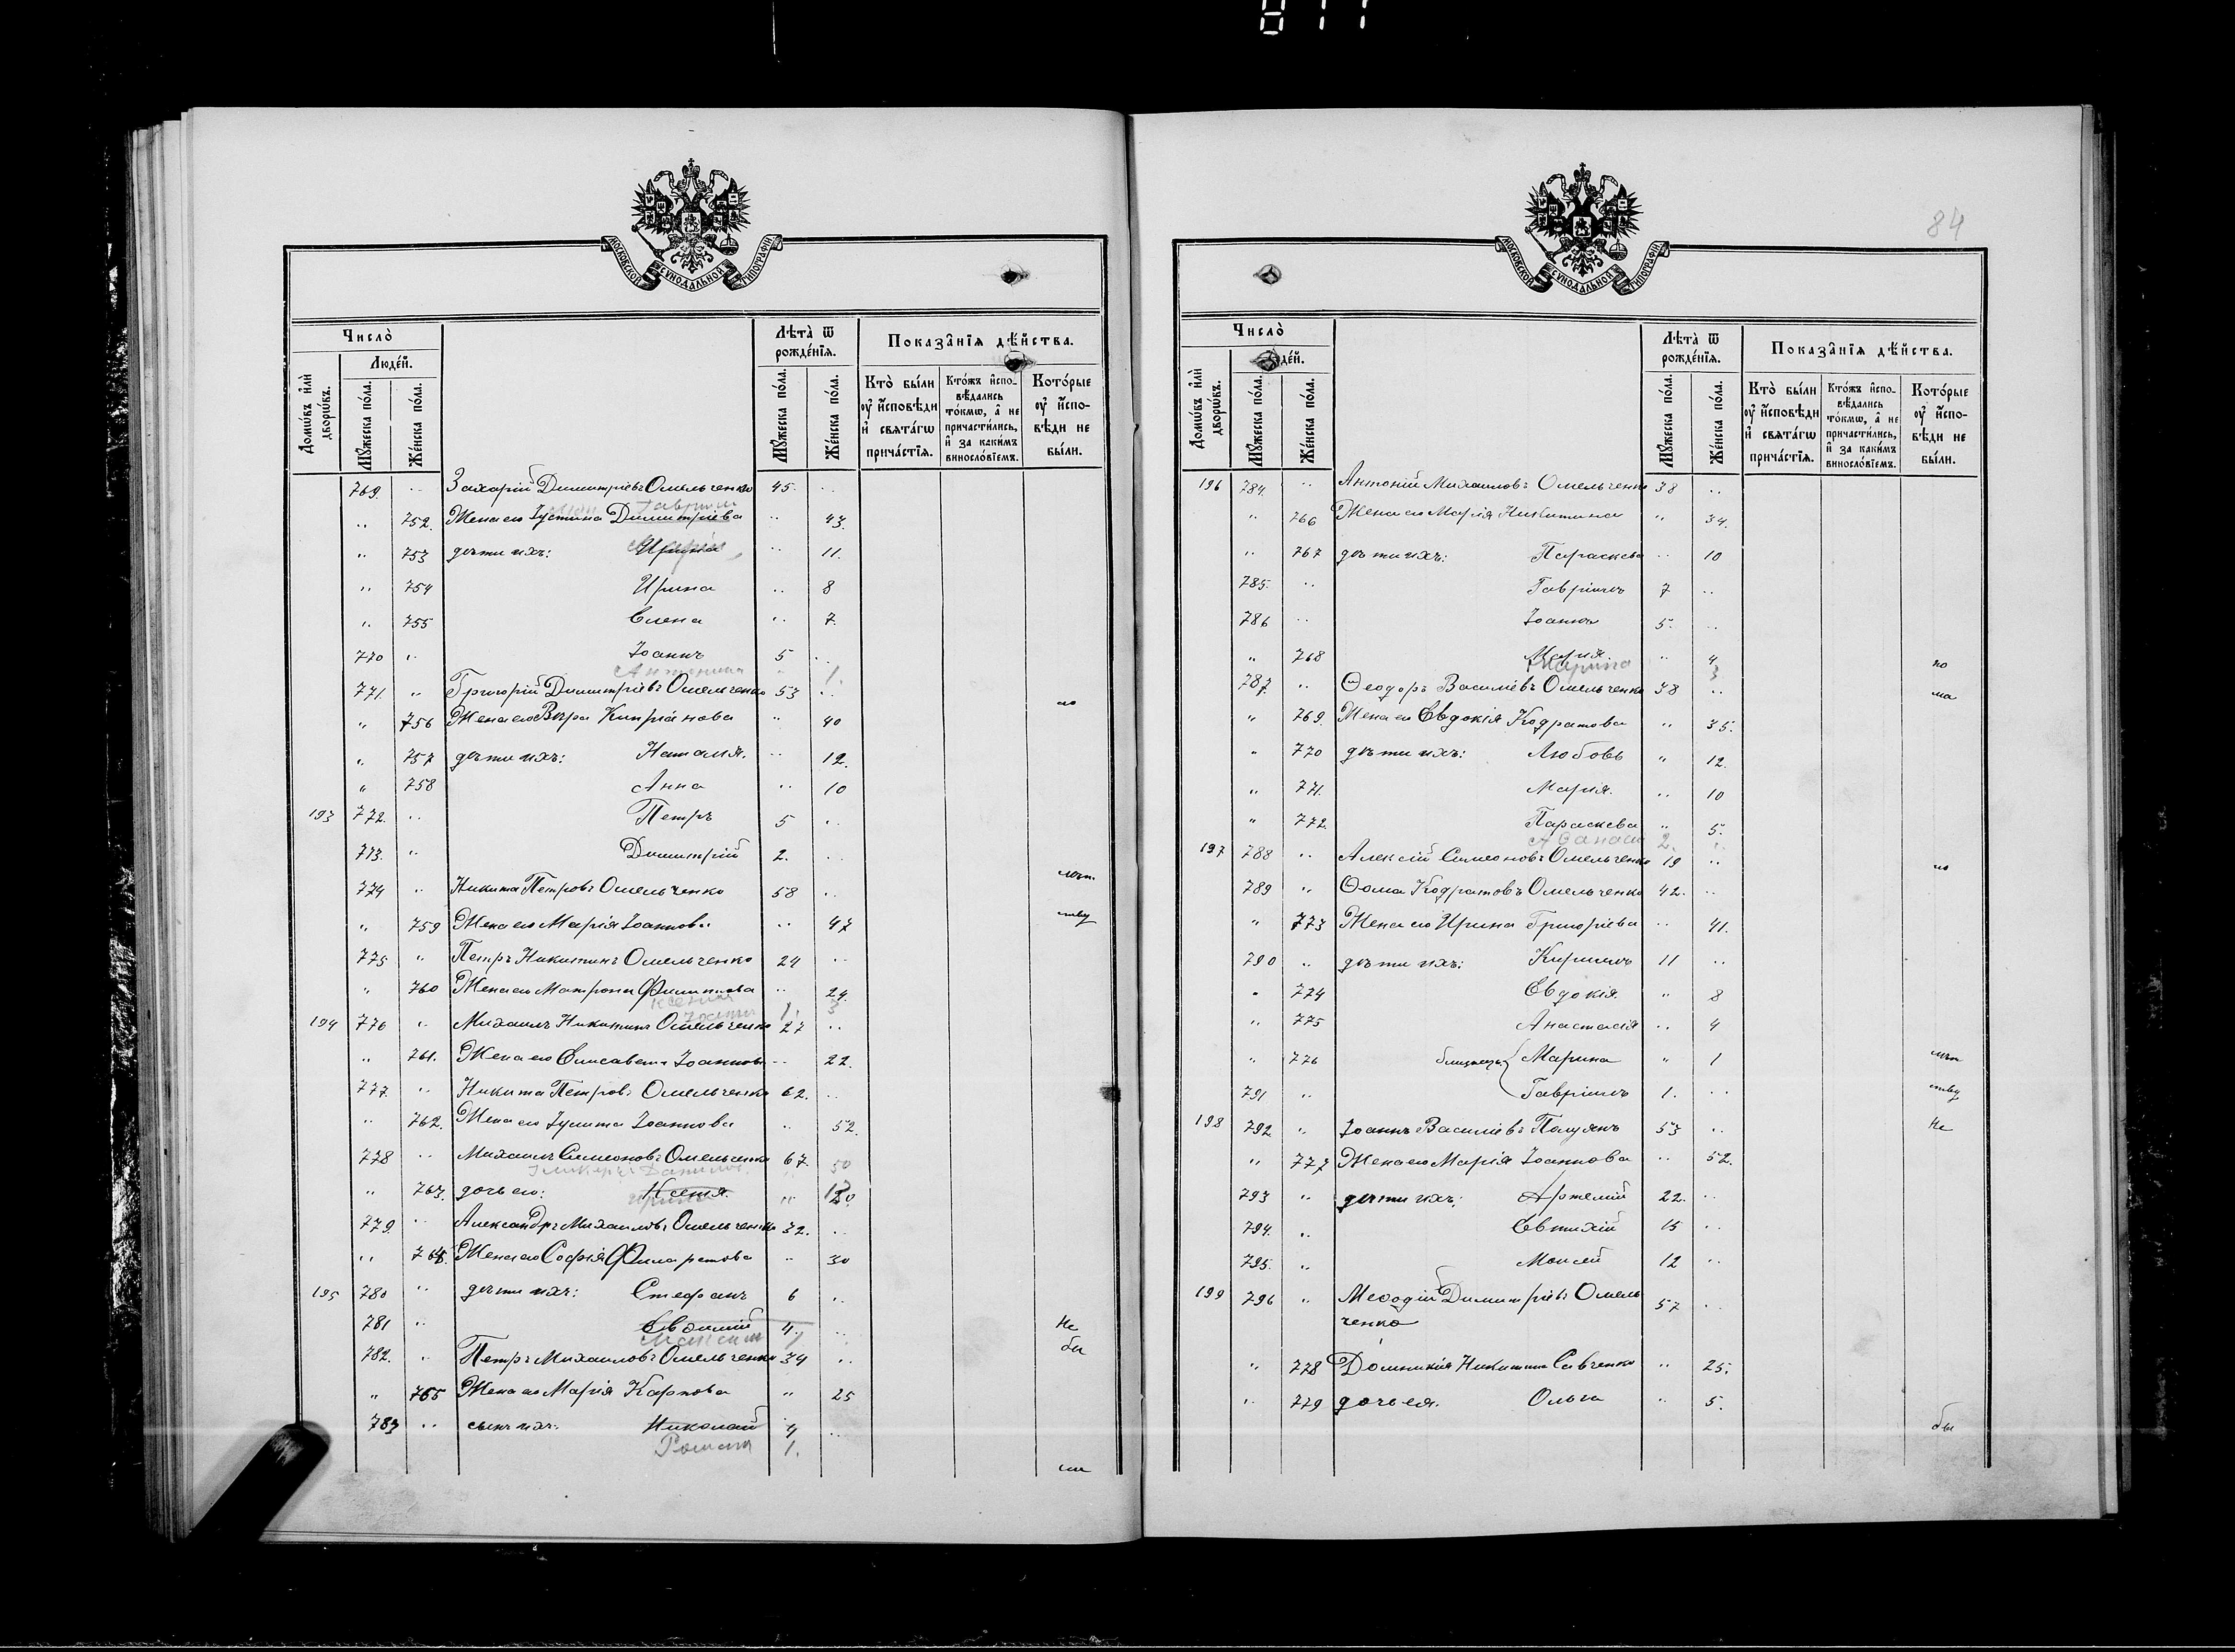 84
МОСКОВСКОЙ СѴНОДАЛЬНОЙ ТИПОГРАФІИ
Число̀
Лѣта̀ ѿ рожде́нїѧ.
Показа̑нїѧ дѣ́йства.
Люде́й.
Домѡ́въ и҆лѝ дворѡ́въ.
Мꙋ́жеска по́ла.
Же́нска по́ла.
Мꙋ́жеска по́ла.
Же́нска по́ла.
Кто̀ бы́ли ᲂу҆ и҆сповѣ́ди и҆ свѧта́гѡ прича́стїѧ.
Кто́жъ и҆сповѣ́дались то́кмѡ, а҆ не причасти́лись, и҆ за каки́мъ винослові́емъ.
Кото́рые ᲂу҆ и҆сповѣ́ди не бы́ли.
769. Захарій Димитріевъ Омельченко 45.
Гавріил
752. Жена его Іустина Димитріева 43.
753 дѣти ихъ: Ирина 11.
754 Ирина 8
755 Елена 7.
770 Іоаннъ 5
Антонина 1.
771. Григорій Димитріевъ Омельченко 53 по
756 Жена его Вѣра Кипріанова 40
757 дѣти ихъ: Наталія. 12.
758 Анна 10
193 772. Петръ 5
773. Димитрій 2.
774 Никита Петровъ Омельченко 58
759 Жена его Марія Іоаннова 47 ству
775 Петръ Никитинъ Омельченко 24
760 Жена его Матрона Филиппова 24.
Ксенія 3
Іоаннъ 1.
194 776 Михаилъ Никитинъ Омельченко 27
761. Жена его Елисавета Іоаннова 22.
777. Никита Петровъ Омельченко 62.
762. Жена его Іулита Іоаннова 52.
778 Михаилъ Симеоновъ Омельченко 67.
50
763. дочь его: Ксенія.
779. Александръ Михаиловъ Омельченко 32.
764. Жена его Софія Филаретова 30
195 780 дѣти ихъ: Стефанъ 6
781 Евфимій 4. Не
Максим 1 бы
782. Петръ Михаиловъ Омельченко 34
765 Жена его Марія Карпова 25
783 сынъ ихъ: Николай 4
Роман 1.
ли
МОСКОВСКОЙ СѴНОДАЛЬНОЙ ТИПОГРАФІИ
Число̀
Лѣта̀ ѿ рожде́нїѧ.
Показа̑нїѧ дѣ́йства.
Домѡ́въ и҆лѝ дворѡ́въ.
Мꙋ́жеска по́ла.
Же́нска по́ла.
Мꙋ́жеска по́ла.
Же́нска по́ла.
Кто̀ бы́ли ᲂу҆ и҆сповѣ́ди и҆ свѧта́гѡ прича́стїѧ.
Кто́жъ и҆сповѣ́дались то́кмѡ, а҆ не причасти́лись, и҆ за каки́мъ винослові́емъ.
Кото́рые ᲂу҆ и҆сповѣ́ди не бы́ли.
196 784. Антоній Михаиловъ Омельченко 38
766 Жена его Марія Никитина 34.
767 дѣти ихъ: Параскева 10
785. Гавріилъ 7
786 Іоаннъ 5.
768 Марія. 4 по
Марина 3
787 Ѳеодоръ Василіевъ Омельченко 38 ма
769. Жена его Евдокія Кодратова 35.
770 дѣти ихъ: Любовь 12.
771. Марія. 10
772. Параскева 5.
Афанасій 2.
197 788 Алексій Симеоновъ Омельченко 19
789 Ѳома Кодратовъ Омельченко 42.
773 Жена его Ирина Григоріева 41.
790 дѣти ихъ: Кириллъ 11
774 Евдокія. 8
775 Анастасія 4
776 близнецы Марина 1
791 Гавріилъ 1. ству
198 792. Іоаннъ Василіевъ Полуянъ 53 Не
777 Жена его Марія Іоаннова 52.
793 дѣти ихъ: Артемій 22.
794. Евтихій 15
795. Моисей 12
199 796 Меѳодій Димитріевъ Омель 57
ченко
778 Домникія Никитина Савченко 25.
779 дочь ея. Ольга 5.
бы